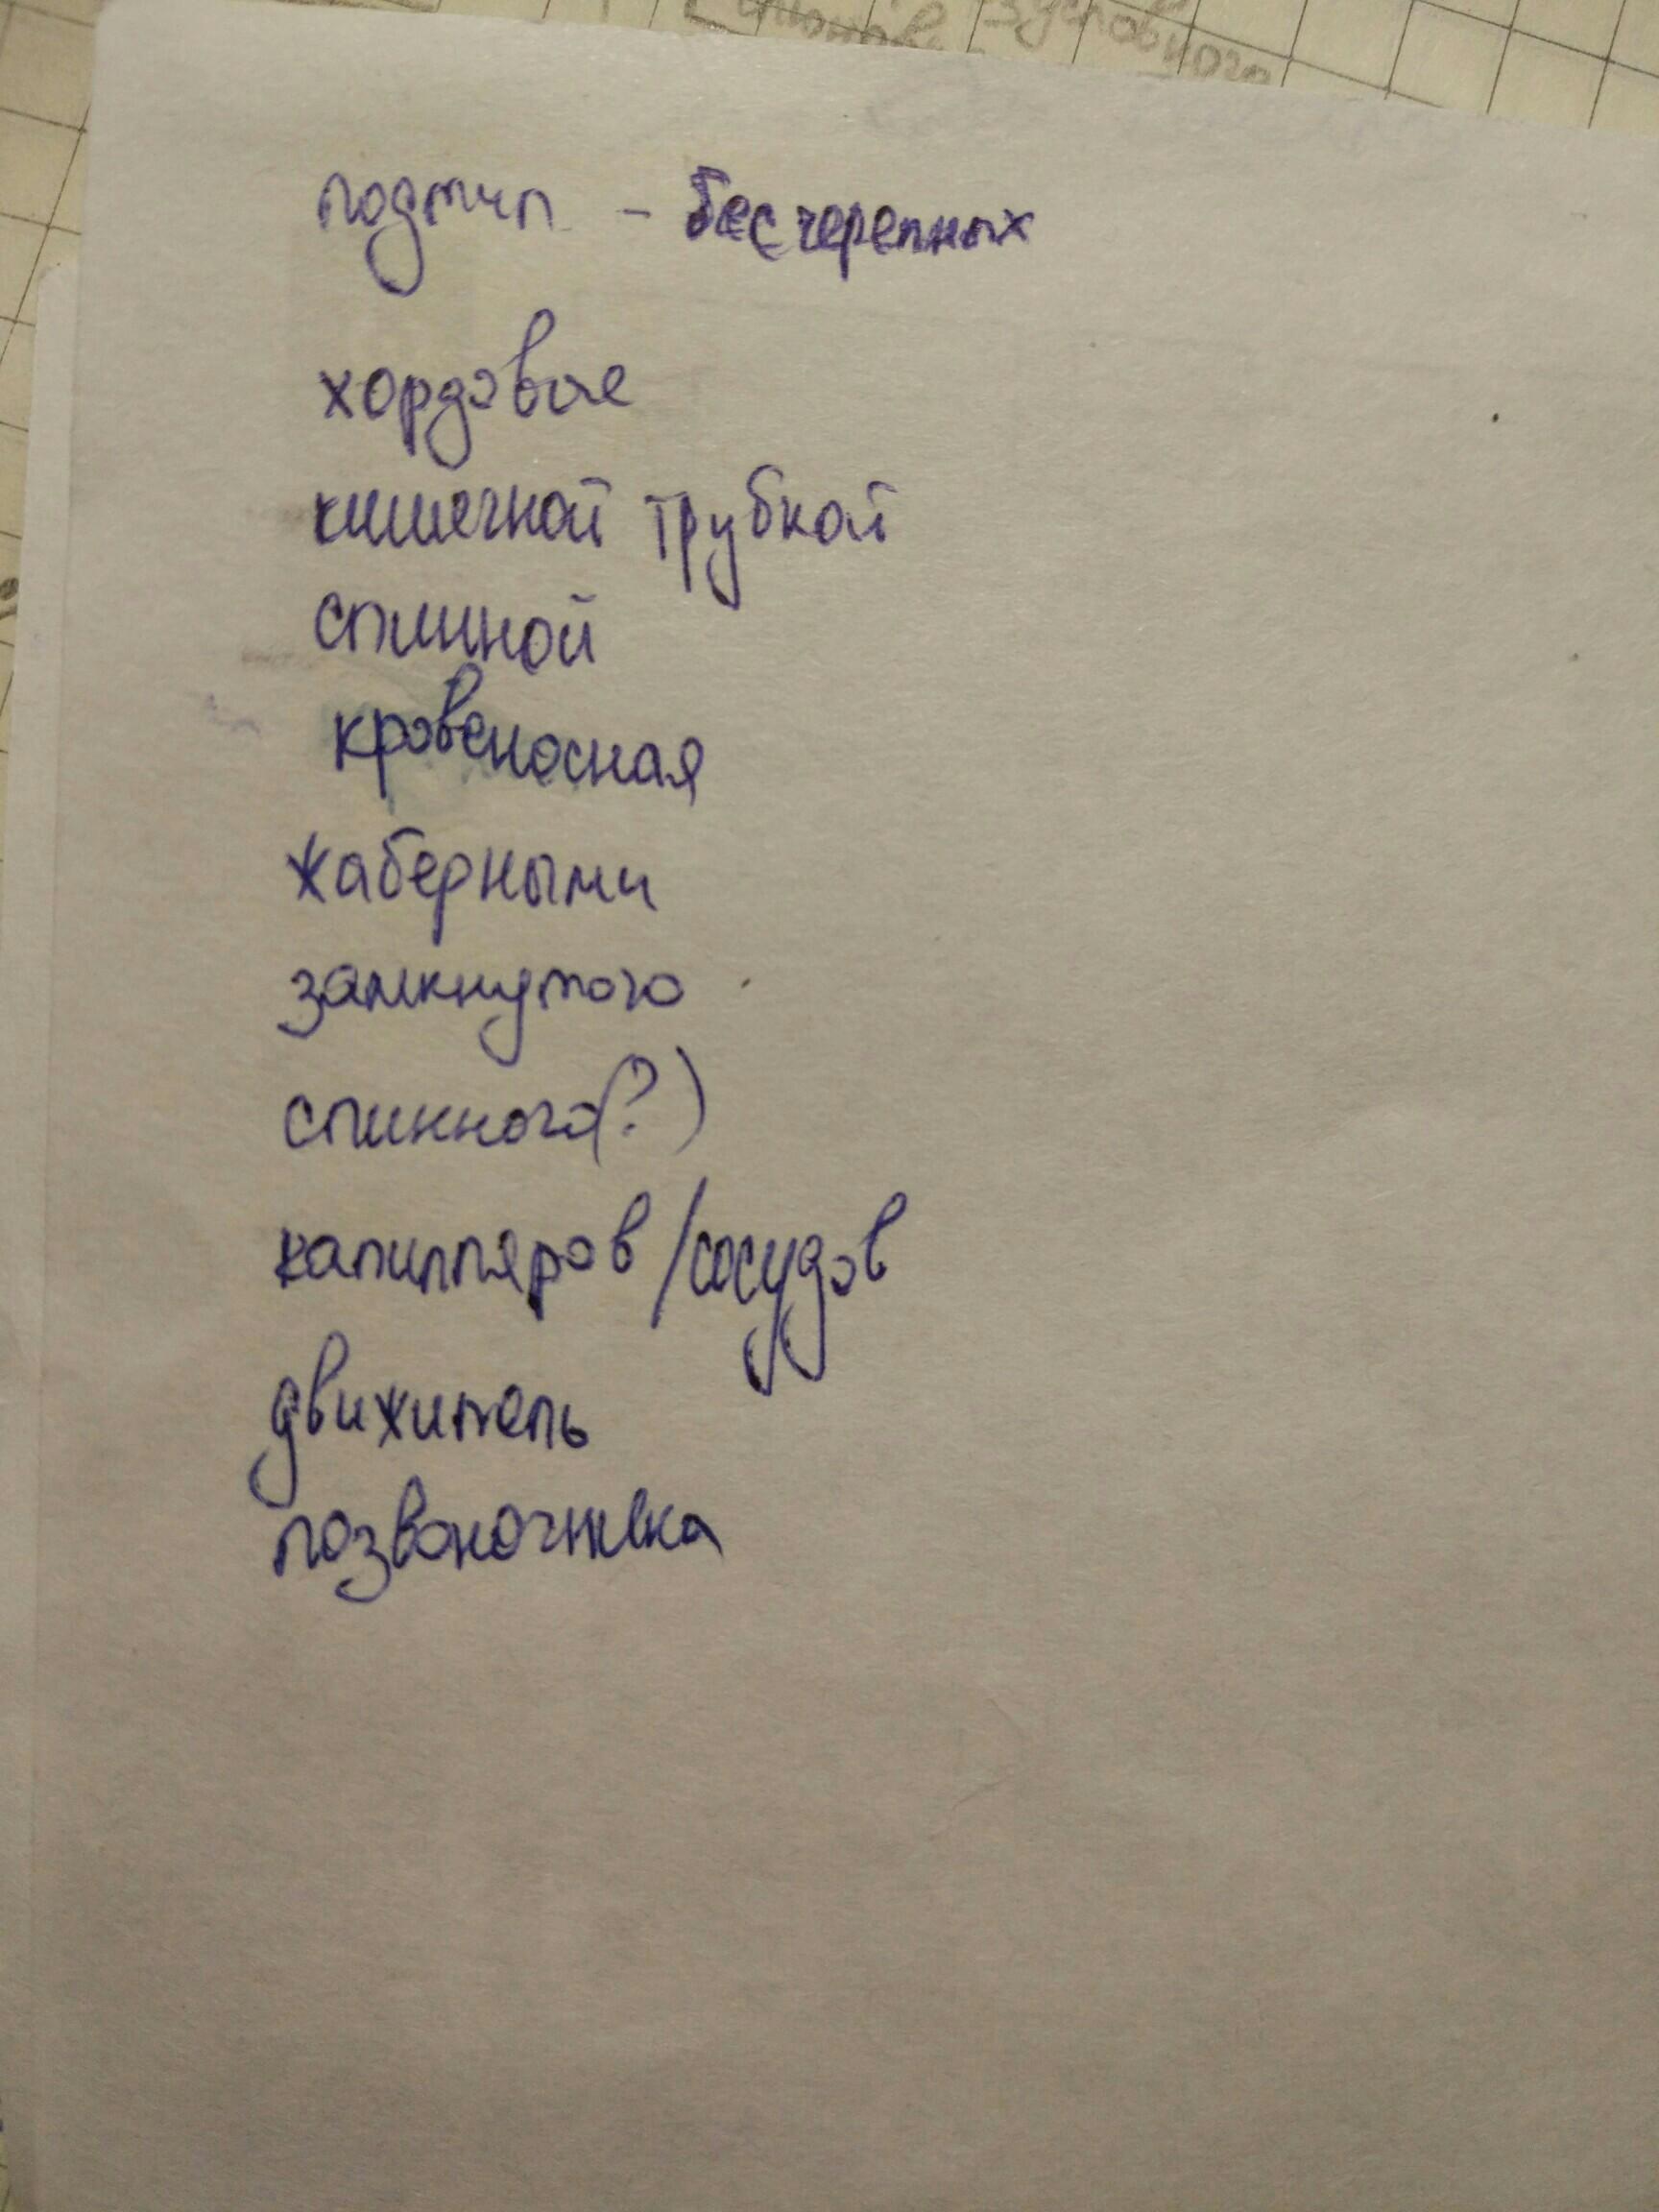 зубовного
подтип - бесчерепных
хордовые
кишечной трубкой
спинной
кровеносная
жаберными
замкнутого
спинного(?)
капилляров/сосудов
движитель
позвоночника